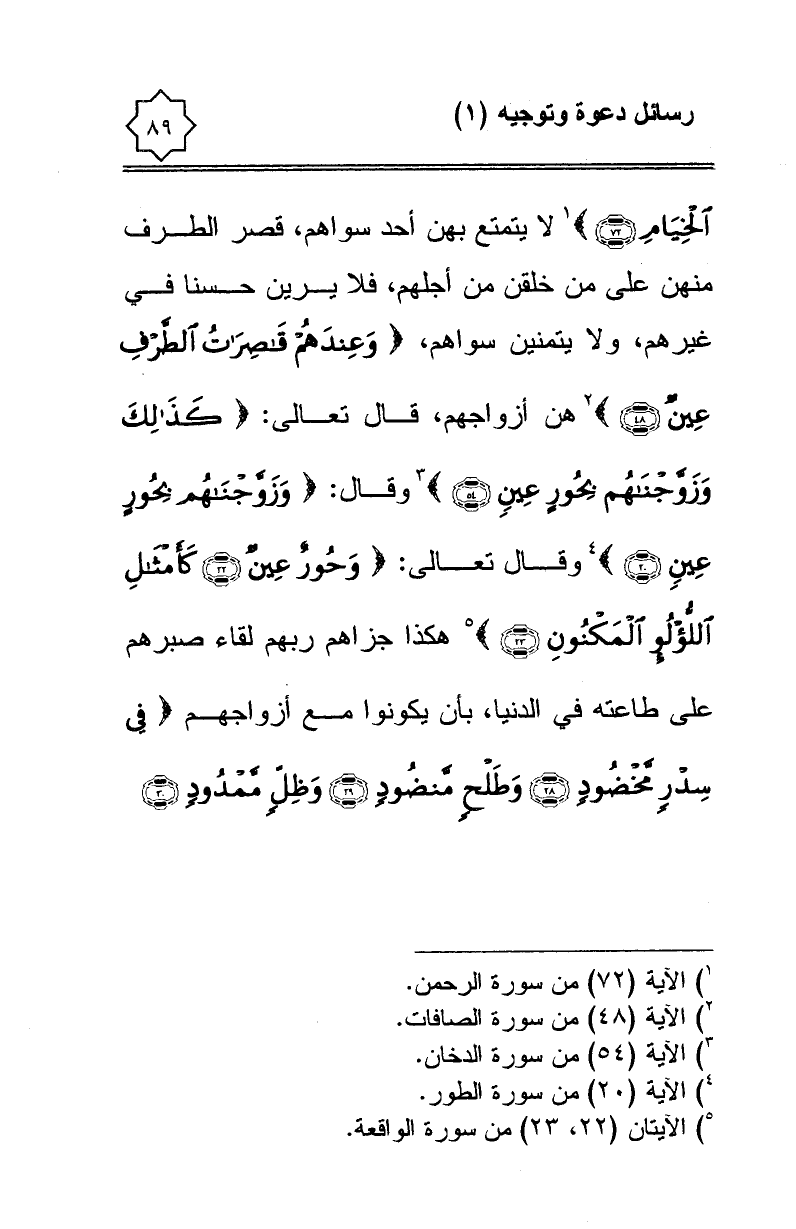 رسائل دعوة وتوجيه (١)
٨٩
ٱلْخِيَامِ ٧٢ ﴾١ لا يتمتع بهن أحد سواهم، قصر الطرف
منهن على من خلقن من أجلهم، فلا يرين حسنا في
غيرهم، ولا يتمنين سواهم، ﴿ وَعِندَهُمْ قَٰصِرَٰتُ ٱلطَّرْفِ
عِينٌ ٤٨ ﴾٢ هن أزواجهم، قال تعالى: ﴿ كَذَٰلِكَ
وَزَوَّجْنَٰهُم بِحُورٍ عِينٍ ٥٤ ﴾٣ وقال: ﴿ وَزَوَّجْنَٰهُم بِحُورٍ
عِينٍ ٢٠ ﴾٤ وقال تعالى: ﴿ وَحُورٌ عِينٌ ٢٢ كَأَمْثَٰلِ
ٱللُّؤْلُوِٕ ٱلْمَكْنُونِ ٢٣ ﴾٥ هكذا جزاهم ربهم لقاء صبرهم
على طاعته في الدنيا، بأن يكونوا مع أزواجهم ﴿ فِى
سِدْرٍ مَّخْضُودٍ ٢٨ وَطَلْحٍ مَّنضُودٍ ٢٩ وَظِلٍّ مَّمْدُودٍ ٣٠
١) الآية (٧٢) من سورة الرحمن.
٢) الآية (٤٨) من سورة الصافات.
٣) الآية (٥٤) من سورة الدخان.
٤) الآية (٢٠) من سورة الطور.
٥) الآيتان (٢٢، ٢٣) من سورة الواقعة.